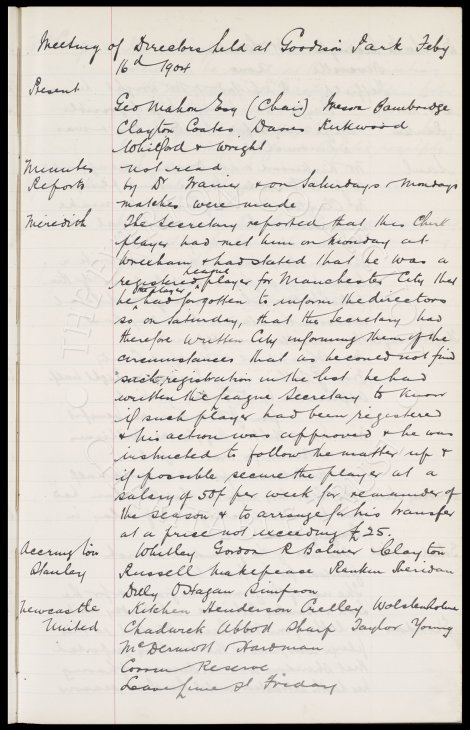 Meeting of Directors held at Goodison Park Feby
16th 1904
Present
Geo Mahon Esq (Chair) Messrs Bainbridge
Clayton Coates, Davies Kirkwood
Whitford & Wright
Minutes not read
Reports by Dr Trainer & on Saturdays Mondays
matches were made
Meredith The Secretary reported that this Chirk
player had met him on Monday at
Wrexham & had stated that he was a
registered league player for Manchester City that
he the player had forgotten to inform the directors
so on Saturday, that the Secretary had
therefore written City informing them of the
circumstances that as he could not find
registration in the list he had
written the league Secretary to know
if such player had been registered
& his action was approved & he was
instructed to follow the matter up &
if possible secure the player at a
salary of 50/- per week for remainder of
the season & to arrange for his transfer
at a price not exceeding £25.
Accrington Whitley Gordon R Balmer Clayton
Stanley Russell Makepeace Rankin Sheridan
Dilly O'Hagan Simpson
Newcastle Kitchen Henderson Crelley Wolstenholme
United Chadwick Abbott Sharp Taylor Young
McDermott Hardman
Corrin Reserve
Leave Lime St Friday